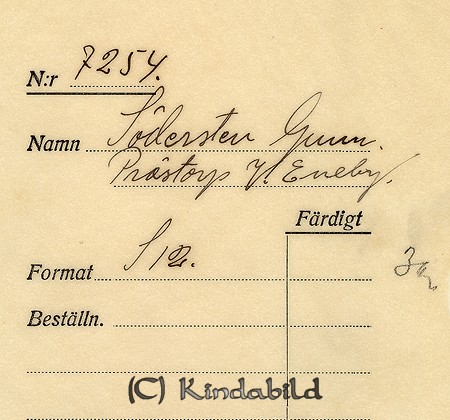 N:r 7254.
Namn Södersten Gunn.
Prästorp V. Eneby.
Färdigt
Format S 12.
Beställn.
(C) Kindabild